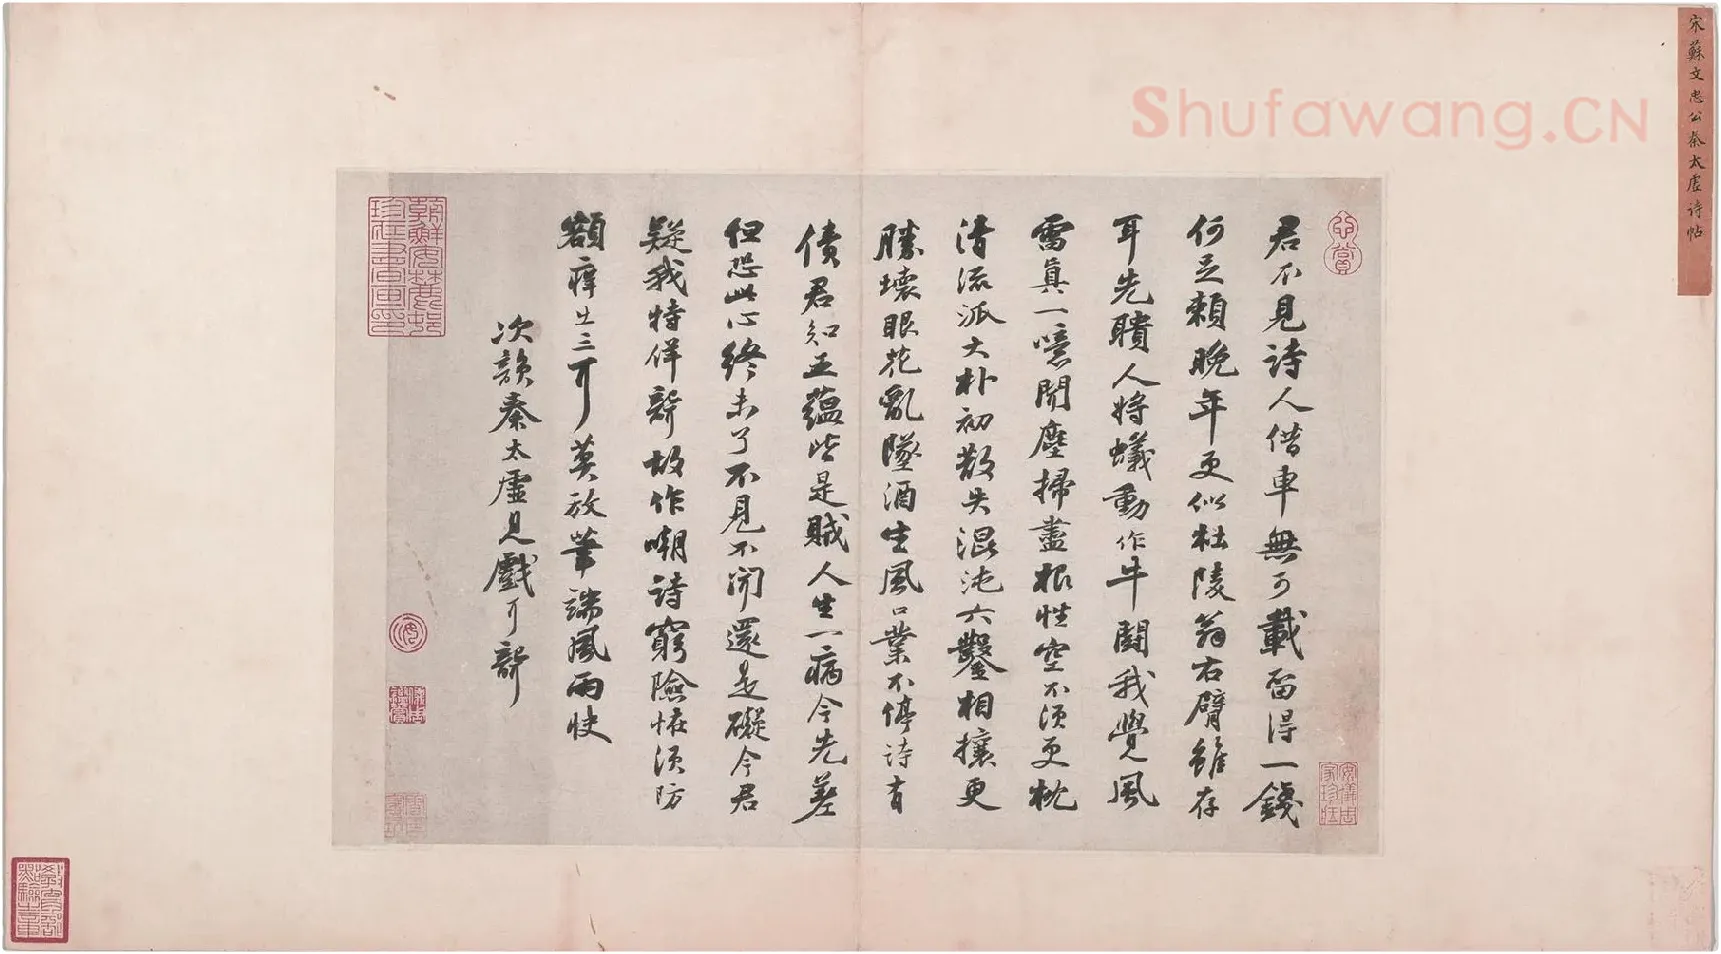 宋蘇文忠公秦太虛诗帖
Shufawang.CN
君不見詩人借車無可載留得一錢
何足賴晚年更似杜陵翁右臂雖存
耳先聵人將蟻動作牛鬬我覺風
雷真一噫聞塵掃盡根性空不須更枕
清流派大朴初散失混沌六鑿相攘更
勝壞眼花亂墜酒生風口業不停诗有
債君知五蘊皆是賊人生一病今先差
但恐此心終未了不見不聞還是礙今君
疑我特佯聾故作嘲詩窮險怪須防
額痒出三耳莫放筆端風雨快
次韻秦太虛見戲耳聾
朝鮮安岐
珍藏書畫印
心賞
安儀周
家珍藏